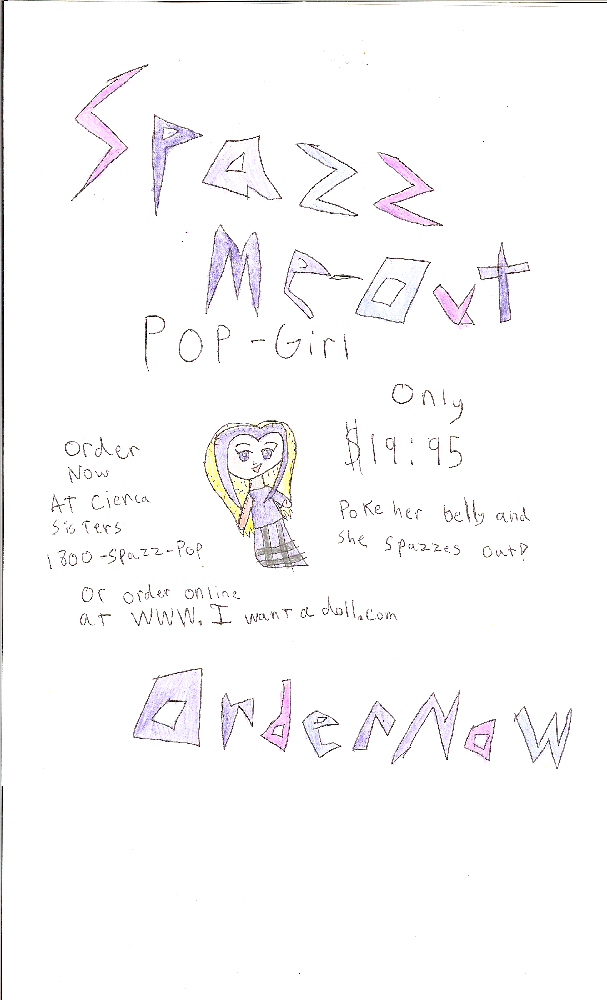 Spazz
Me-out
POP-Girl
Only
$19:95
Order
Now
AT Cierca
SisTers
1800-Spazz-Pop
Poke her belly and
she spazzes out!
Or order online
at WWW. I want a doll.com
Order Naw